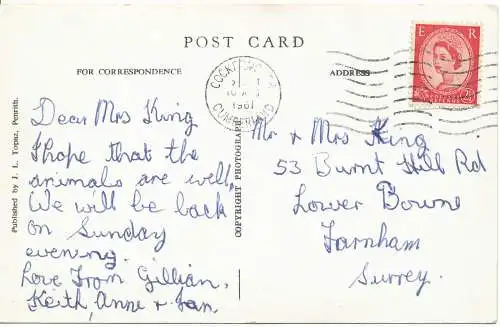 POST CARD
FOR CORRESPONDENCE
ADDRESS
Dear Mrs King
I hope that the
animals are well.
We will be back
on Sunday
evening.
Love From Gillian,
Keith, Anne + Ian.
Published by J. L. Topaz, Penrith.
COPYRIGHT PHOTOGRAPH
COCKERMOUTH
1961
CUMBERLAND
E R
POSTAGE REVENUE
Mr & Mrs King
53 Burnt Hill Rd
Lower Bourne
Farnham
Surrey.